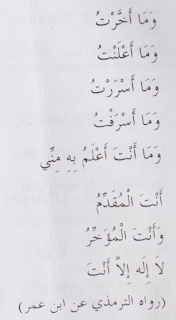 وَمَا أَخَّرْتُ
وَمَا أَعْلَنْتُ
وَمَا أَسْرَرْتُ
وَمَا أَسْرَفْتُ
وَمَا أَنْتَ أَعْلَمُ بِهِ مِنِّي
أَنْتَ الْمُقَدِّمُ
وَأَنْتَ الْمُؤَخِّرُ
لَا إِلَه إِلاَّ أَنْتَ
(رواه الترمذي عن ابن عمر)